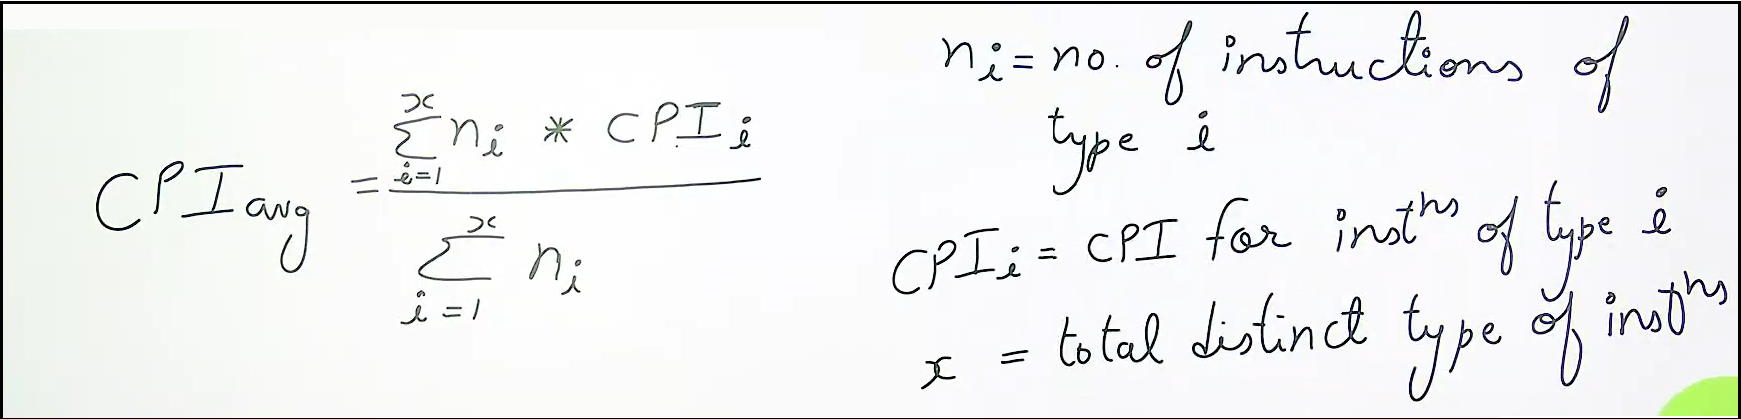 CPIavg = Σ(i=1 to x) ni * CPIi / Σ(i=1 to x) ni
ni = no. of instructions of
type i
CPIi = CPI for instns of type i
x = total distinct type of instns